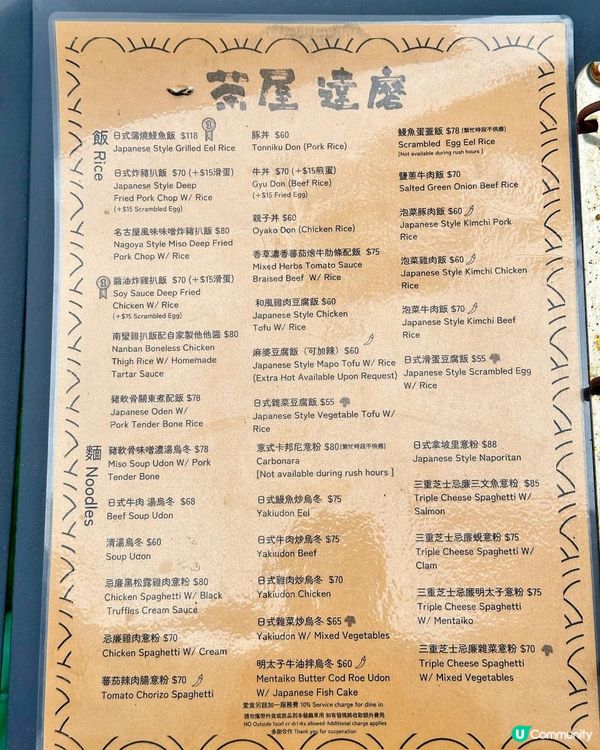 茶屋 達磨
飯 Rice
日式蒲燒鰻魚飯 $118
Japanese Style Grilled Eel Rice
日式炸豬扒飯 $70 (+$15滑蛋)
Japanese Style Deep
Fried Pork Chop W/ Rice
(+$15 Scrambled Egg)
名古屋風味味噌炸豬扒飯 $80
Nagoya Style Miso Deep Fried
Pork Chop W/ Rice
醬油炸雞扒飯 $70 (+$15滑蛋)
Soy Sauce Deep Fried
Chicken W/ Rice
(+$15 Scrambled Egg)
南蠻雞扒飯配自家製他他醬 $80
Nanban Boneless Chicken
Thigh Rice W/ Homemade
Tartar Sauce
豬軟骨關東煮配飯 $78
Japanese Oden W/
Pork Tender Bone Rice
豚丼 $60
Tonniku Don (Pork Rice)
牛丼 $70 (+$15煎蛋)
Gyu Don (Beef Rice)
(+$15 Fried Egg)
親子丼 $60
Oyako Don (Chicken Rice)
香草濃香蕃茄燴牛肋條配飯 $75
Mixed Herbs Tomato Sauce
Braised Beef W/ Rice
和風雞肉豆腐飯 $60
Japanese Style Chicken
Tofu W/ Rice
麻婆豆腐飯（可加辣）$60
Japanese Style Mapo Tofu W/ Rice
(Extra Hot Available Upon Request)
日式雜菜豆腐飯 $55
Japanese Style Vegetable Tofu W/
Rice
鰻魚蛋蓋飯 $78 [繁忙時段不供應]
Scrambled Egg Eel Rice
[Not available during rush hours ]
鹽蔥牛肉飯 $70
Salted Green Onion Beef Rice
泡菜豚肉飯 $60
Japanese Style Kimchi Pork
Rice
泡菜雞肉飯 $60
Japanese Style Kimchi Chicken
Rice
泡菜牛肉飯 $70
Japanese Style Kimchi Beef
Rice
日式滑蛋豆腐飯 $55
Japanese Style Scrambled Egg
W/ Rice
麵 Noodles
豬軟骨味噌濃湯烏冬 $78
Miso Soup Udon W/ Pork
Tender Bone
日式牛肉 湯烏冬 $68
Beef Soup Udon
清湯烏冬 $60
Soup Udon
忌廉黑松露雞肉意粉 $80
Chicken Spaghetti W/ Black
Truffles Cream Sauce
忌廉雞肉意粉 $70
Chicken Spaghetti W/ Cream
蕃茄辣肉腸意粉 $70
Tomato Chorizo Spaghetti
意式卡邦尼意粉 $80 [繁忙時段不供應]
Carbonara
[Not available during rush hours ]
日式鰻魚炒烏冬 $75
Yakiudon Eel
日式牛肉炒烏冬 $75
Yakiudon Beef
日式雞肉炒烏冬 $70
Yakiudon Chicken
日式雜菜炒烏冬 $65
Yakiudon W/ Mixed Vegetables
明太子牛油拌烏冬 $60
Mentaiko Butter Cod Roe Udon
W/ Japanese Fish Cake
日式拿坡里意粉 $88
Japanese Style Naporitan
三重芝士忌廉三文魚意粉 $85
Triple Cheese Spaghetti W/
Salmon
三重芝士忌廉蜆意粉 $75
Triple Cheese Spaghetti W/
Clam
三重芝士忌廉明太子意粉 $75
Triple Cheese Spaghetti
W/ Mentaiko
三重芝士忌廉雜菜意粉 $70
Triple Cheese Spaghetti
W/ Mixed Vegetables
堂食另設加一服務費 10% Service charge for dine in
請勿攜帶外食或飲品到本餐廳享用 如有發現將收取額外費用
NO Outside food or drinks allowed Additional charge applies
多謝合作 Thank you for cooperation
U Community